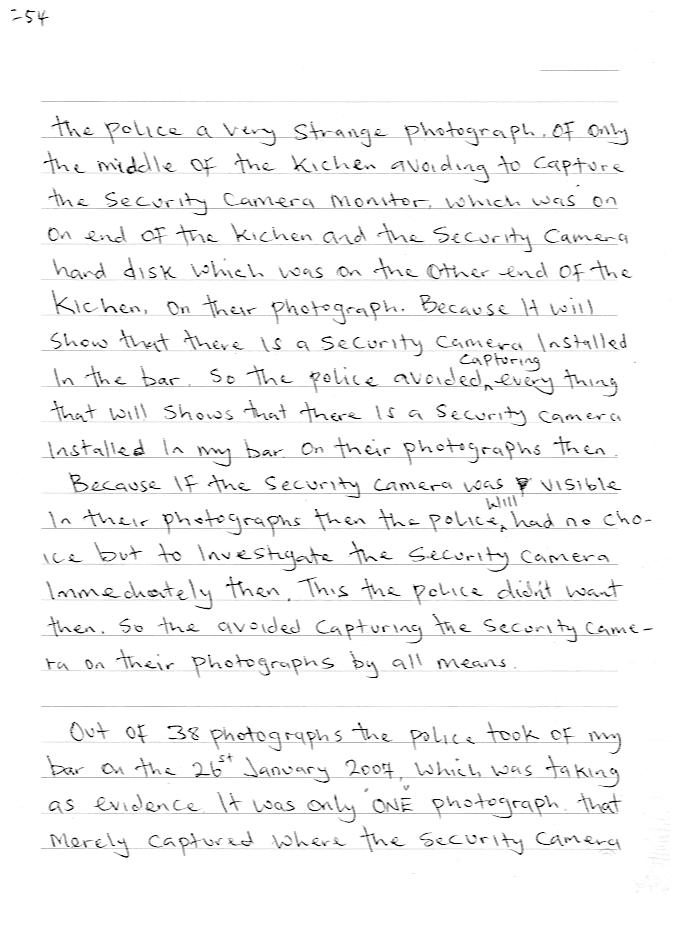 -54
the police a very strange photograph. Of only
the middle of the kichen avoiding to capture
the security camera monitor, which was on
on end of the kichen and the security camera
hard disk which was on the other end of the
kichen, on their photograph. Because It will
show that there is a security camera Installed
In the bar. So the police avoided capturing every thing
that will shows that there Is a security camera
Installed In my bar on their photographs then.
Because If the security camera was visible
In their photographs then the police will had no cho-
ice but to Investigate the security camera
Immediately then. This the police didn't want
then. So the avoided capturing the security came-
ra on their photographs by all means.
Out of 38 photographs the police took of my
bar on the 26st January 2007, which was taking
as evidence. It was only "ONE" photograph. that
merely captured where the security camera